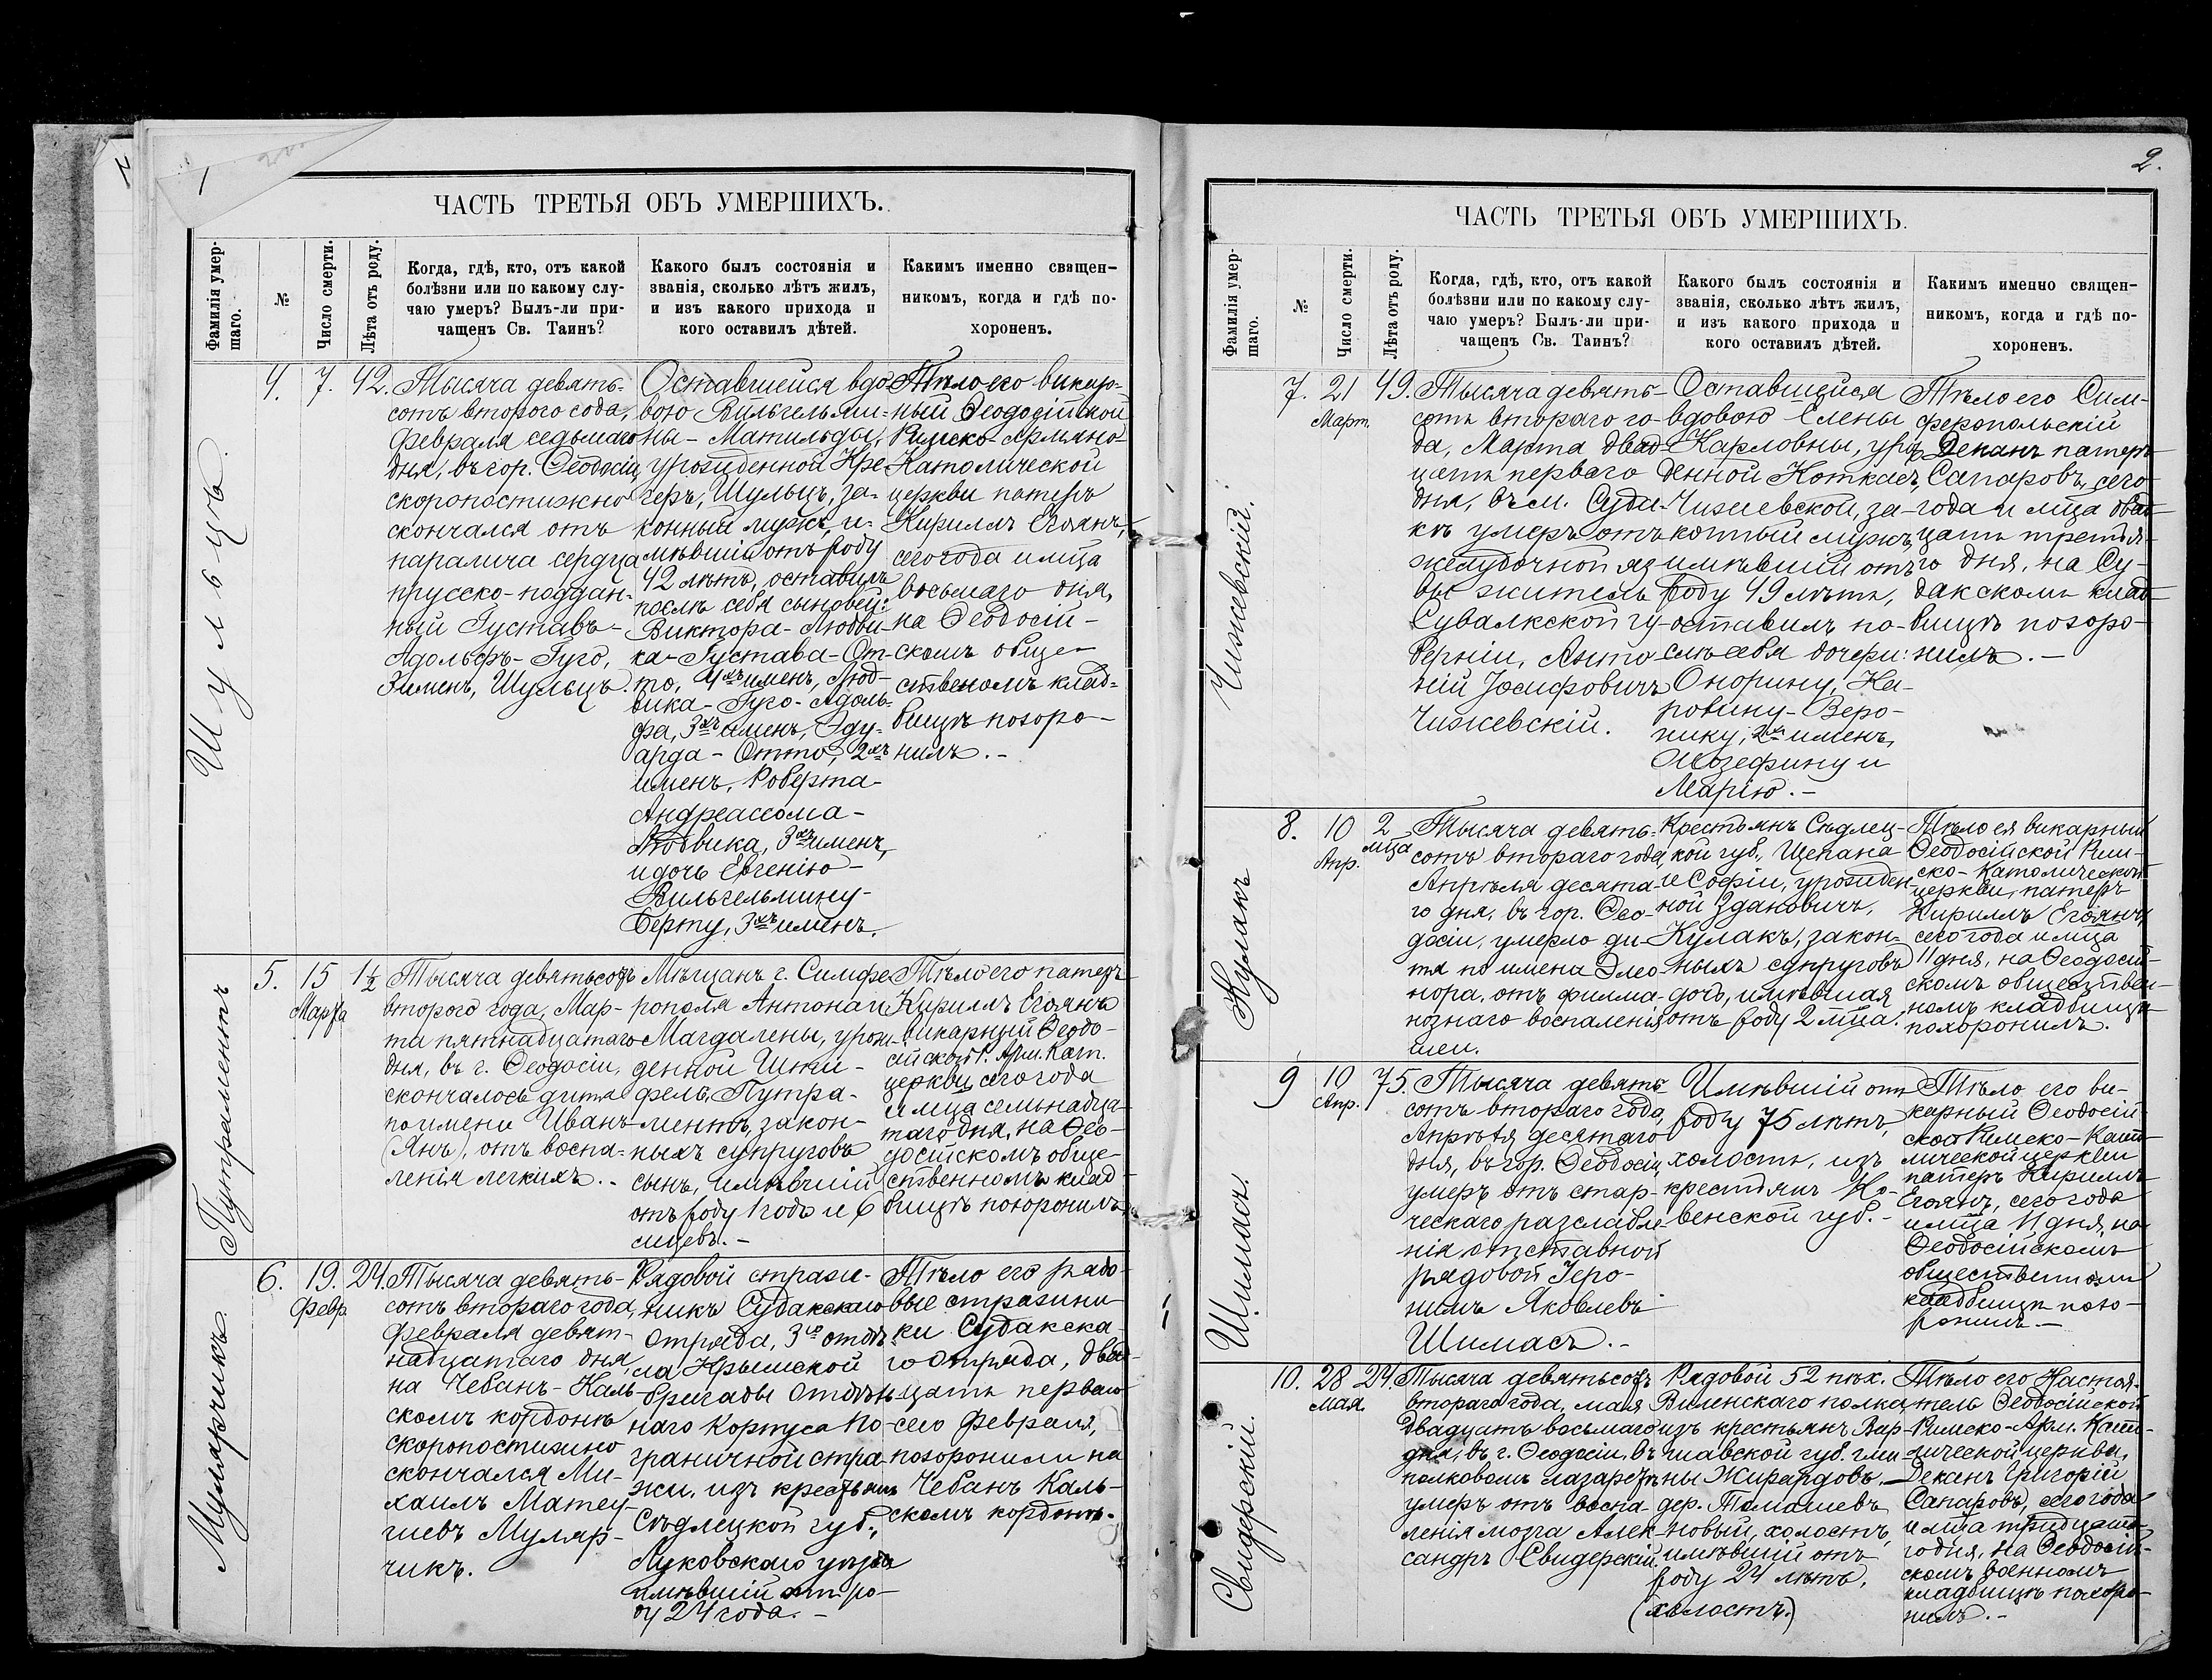 1
ЧАСТЬ ТРЕТЬЯ ОБЪ УМЕРШИХЪ.
Фамилія умер-
шаго.
№
Число смерти.
Лѣта отъ роду.
Когда, гдѣ, кто, отъ какой
болѣзни или по какому слу-
чаю умеръ? Былъ-ли при-
чащенъ Св. Таинъ?
Какого былъ состоянія и
званія, сколько лѣтъ жилъ,
и изъ какого прихода и
кого оставилъ дѣтей.
Какимъ именно священ-
никомъ, когда и гдѣ по-
хороненъ.
Шульцъ.
4.
7.
42.
Тысяча девять-
сотъ второго года,
Февраля седьмаго
дня, въ гор. Ѳеодосіи,
скоропостижно
скончался отъ
паралича сердца
прусско-поддан-
ный Густавъ-
Адольфъ-Гуго,
3 именъ, Шульцъ.
Оставшейся вдо-
вою Вильгельми-
ны-Матильды,
урожденной Кре-
геръ, Шульцъ, за-
конный мужъ, и-
мѣвшій отъ роду
42 лѣтъ, оставилъ
послѣ себя сыновей:
Виктора-Людви-
ка-Густава-От-
то, 4хъ именъ, Люд-
вика-Гуго-Адоль-
фа, 3хъ именъ, Эду-
арда-Отто, 2хъ
именъ, Роберта-
Андреассома-
Людвика, 3хъ именъ,
и дочь Евгенію-
Вильгельмину-
Берту, 3хъ именъ.
Тѣло его викар-
ный Ѳеодосійской
Римско-Армяно-
Католической
церкви патеръ
Кириллъ Егоянъ,
сего года и мѣца
восьмаго дня,
на Ѳеодосій-
скомъ обще-
ственомъ клад-
бищѣ похоро-
нилъ.-
Путраментъ
5.
15
Марта
1½
Тысяча девятьсотъ
второго года, Мар-
та пятнадцатаго
дня, въ г. Ѳеодосіи,
скончалось дитя
по имени Иванъ
(Янъ), отъ воспа-
ленія легкихъ.-
Мѣщанъ г. Симфе-
рополя Антона и
Магдалены, урож-
денной Шти-
фель, Путра-
ментъ, закон-
ныхъ супруговъ
сынъ, имѣвшій
отъ роду 1 годъ и 6
мѣсяцевъ.-
Тѣло его патеръ
Кириллъ Егоянъ
викарный Ѳеодо-
сійской Р. Арм. Кат.
церкви сего года
и мѣца семьнадца-
таго дня, на Ѳео-
досійскомъ обще-
ственномъ клад-
бищѣ похоронилъ
Мулярчикъ.
6.
19.
Февр.
24.
Тысяча девять-
сотъ втораго года,
Февраля девят-
надцатаго дня,
на Чебанъ-Каль-
скомъ кордонѣ
скоропостижно
скончался Ми-
хаилъ Матеу-
шевъ Муляр-
чикъ.
Рядовой страж-
никъ Судакскаго
отряда, 3го отдѣ-
ла Крымской
бригады Отдѣль-
наго Корпуса По-
граничной стра-
жи, изъ крестьянъ
Сѣдлецкой губ.,
Луковскаго уѣзда
имѣвшій отъ ро-
ду 24 года.-
Тѣло его рядо-
вые стражни-
ки Судакска-
го Отряда, двад-
цать перваго
сего Февраля,
похоронили на
Чебанъ Каль-
скомъ кордонѣ.
2.
ЧАСТЬ ТРЕТЬЯ ОБЪ УМЕРШИХЪ.
Фамилія умер-
шаго.
№
Число смерти.
Лѣта отъ роду.
Когда, гдѣ, кто, отъ какой
болѣзни или по какому слу-
чаю умеръ? Былъ-ли при-
чащенъ Св. Таинъ?
Какого былъ состоянія и
званія, сколько лѣтъ жилъ,
и изъ какого прихода и
кого оставилъ дѣтей.
Какимъ именно священ-
никомъ, когда и гдѣ по-
хороненъ.
Чижевскій.
7.
21
Март.
49.
Тысяча девять-
сотъ втораго го-
да, Марта двад-
цать перваго
дня, въ м. Суда-
кѣ умеръ отъ
желудочной яз-
вы житель
Сувалкской гу-
берніи, Анто-
ній Іосифовичъ
Чижевскій.
Оставшейся
вдовою Елены
Карловны, урож-
денной Коткасъ,
Чижевской, за-
конный мужъ,
имѣвшій отъ
роду 49 лѣтъ,
оставилъ по-
слѣ себя дочери:
Онорину, Ка-
ролину-Веро-
нику, 2хъ именъ,
Жозефину и
Марію.-
Тѣло его Сим-
феропольскій
Деканъ патеръ
Сапаровъ, сего
года и мѣца двад-
цать третья-
го дня, на Су-
дакскомъ клад-
бищѣ похоро-
нилъ.-
Кулакъ
8.
10
Апр.
2
мѣца
Тысяча девять-
сотъ втораго года,
Апрѣля десята-
го дня, въ гор. Ѳео-
досіи, умерло ди-
тя по имени Элео-
нора, отъ флегма-
нознаго воспаленія
шеи.
Крестьянъ Сѣдлец-
кой губ., Щепана
и Софіи, урожден-
ной Здановичъ,
Кулакъ, закон-
ныхъ супруговъ
дочь, имѣвшая
отъ роду 2 мѣца.
Тѣло ея викарный
Ѳеодосійской Рим-
ско-Католической
церкви, патеръ
Кириллъ Егоянъ,
сего года и мѣца
11 дня, на Ѳеодосій-
скомъ обществен-
номъ кладбищѣ
похоронилъ.
Шимасъ.
9
10
Апр.
75.
Тысяча девять-
сотъ втораго года,
Апрѣля десятаго
дня, въ гор. Ѳеодосіи,
умеръ отъ стар-
ческаго разслабле-
нія отставной
рядовой Іеро-
нимъ Яковлевъ
Шимасъ.-
Имѣвшій отъ
роду 75 лѣтъ,
холостъ, изъ
крестьянъ Ко-
венской губ.-
Тѣло его ви-
карный Ѳеодосій-
ской Римско-Като-
лической церкви
патеръ Кириллъ
Егоянъ, сего года
и мѣца 11 дня, на
Ѳеодосійскомъ
общественномъ
кладбищѣ похо-
ронилъ.-
Свидерскій.
10.
28
Мая.
24.
Тысяча девятьсотъ
втораго года, мая
двадцать восьмаго
дня, въ г. Ѳеодосіи, въ
полковомъ лазаретѣ
умеръ отъ воспа-
ленія мозга Алек-
сандръ Свидерскій.
Рядовой 52 пѣх.
Виленскаго полка,
изъ крестьянъ Вар-
шавской губ. гми-
ны Жирардовъ,-
дер. Томашевъ
новый, холостъ,
имѣвшій отъ
роду 24 лѣтъ.
(холостъ.)
Тѣло его Настоя-
тель Ѳеодосійской
Римско-Арм. Като-
лической церкви,
Деканъ Григорій
Сапаровъ, сего года
и мѣца тридцата-
го дня, на Ѳеодосій-
скомъ военномъ
кладбищѣ похоро-
нилъ.-